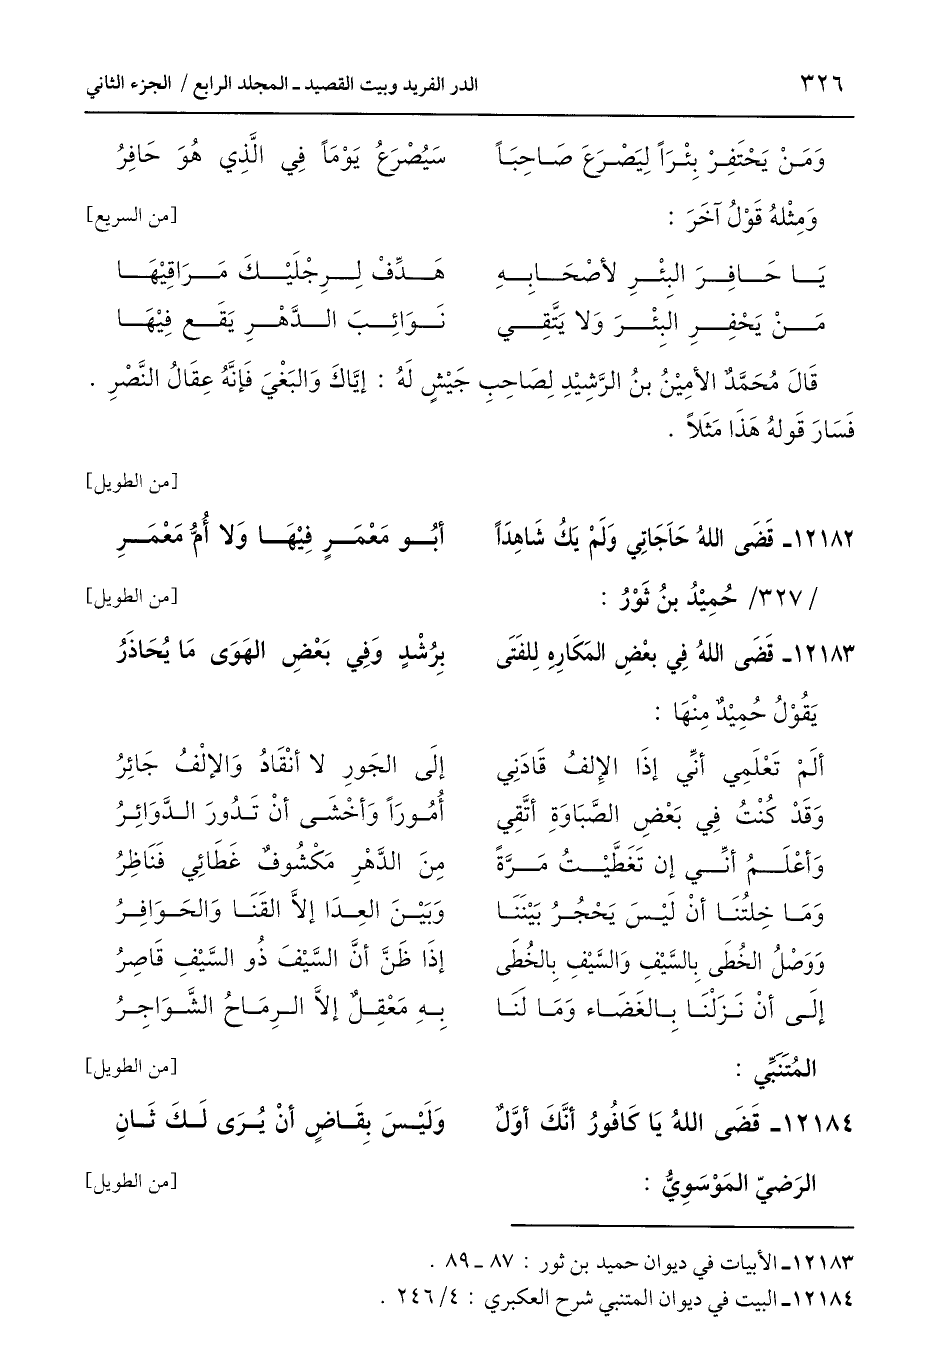 ٣٢٦ الدر الفريد وبيت القصيد ـ المجلد الرابع / الجزء الثاني
وَمَنْ يَحْتَفِرْ بِئْرَاً لِيَصْرَعَ صَاحِبَاً سَيُصْرَعُ يَوْمَاً فِي الَّذِي هُوَ حَافِرُ
وَمِثْلهُ قَوْلُ آخَرَ : [من السريع]
يَا حَافِرَ البِئْرِ لأصْحَابِهِ هَدِّفْ لِرِجْلَيْكَ مَرَاقِيْهَا
مَنْ يَحْفِرِ البِئْرَ وَلا يَتَّقِي نَوَائِبَ الدَّهْرِ يَقَع فِيْهَا
قَالَ مُحَمَّدٌ الأمِيْنُ بنُ الرَّشِيْدِ لِصَاحِبِ جَيْشٍ لَهُ : إيَّاكَ وَالبَغْيَ فَإنَّهُ عِقَالُ النَّصْرِ .
فَسَارَ قَولهُ هَذَا مَثَلاً .
[من الطويل]
١٢١٨٢ـ قَضَى اللهُ حَاجَاتِي وَلَمْ يَكُ شَاهِدَاً أبُو مَعْمَرٍ فِيْهَا وَلا أُمُّ مَعْمَرِ
/٣٢٧/ حُمِيْدُ بنُ ثَوْرُ : [من الطويل]
١٢١٨٣ـ قَضَى اللهُ فِي بعْضِ المَكَارِهِ لِلفَتَى بِرُشْدٍ وَفِي بَعْضِ الهَوَى مَا يُحَاذَرُ
يَقُوْلُ حُمِيْدٌ مِنْهَا :
ألَمْ تَعْلَمِي أنِّي إذَا الإلفُ قَادَنِي إلَى الجَورِ لا أنْقَادُ وَالإلْفُ جَائِرُ
وَقَدْ كُنْتُ فِي بَعْضِ الصَّبَاوَةِ أتَّقِي أُمُورَاً وَأخْشَى أنْ تَدُورَ الدَّوَائِرُ
وَأعْلَمُ أنِّي إن تَغَطَّيْتُ مَرَّةً مِنَ الدَّهْرِ مَكْشُوفٌ غَطَائِي فَنَاظِرُ
وَمَا خِلتُنَا أنْ لَيْسَ يَحْجُرُ بَيْنَنَا وَبَيْنَ العِدَا إلاَّ القَنَا وَالحَوَافِرُ
وَوَصْلُ الخُطَى بِالسَّيْفِ وَالسَّيْفِ بِالخُطَى إذَا ظَنَّ أنَّ السَّيْفَ ذُو السَّيْفِ قَاصِرُ
إلَى أنْ نَزَلْنَا بِالغَضَاء وَمَا لَنَا بِهِ مَعْقِلٌ إلاَّ الرِمَاحُ الشَّوَاجِرُ
المُتَنَبِّي : [من الطويل]
١٢١٨٤ـ قَضَى اللهُ يَا كَافُورُ أنَّكَ أوَّلٌ وَلَيْسَ بِقَاضٍ أنْ يُرَى لَكَ ثَانِ
الرَضيّ المَوْسَوِيُّ : [من الطويل]
١٢١٨٣ـ الأبيات في ديوان حميد بن ثور : ٨٧ ـ ٨٩ .
١٢١٨٤ـ البيت في ديوان المتنبي شرح العكبري : ٤/ ٢٤٦ .